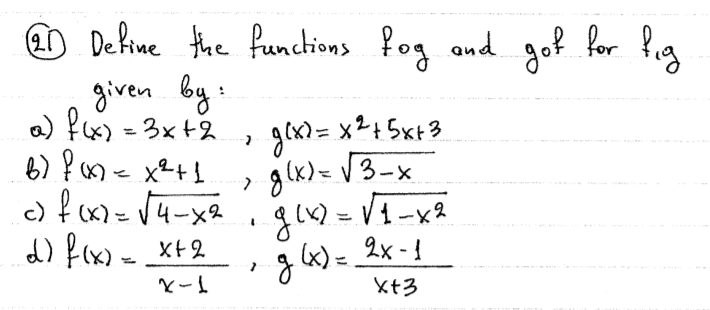 21 Define the functions fog and gof for f,g
given by:
a) f(x) = 3x+2 , g(x) = x²+5x+3
b) f(x) = x²+1 , g(x) = √(3-x)
c) f(x) = √(4-x²) , g(x) = √(1-x²)
d) f(x) = (x+2)/(x-1) , g(x) = (2x-1)/(x+3)